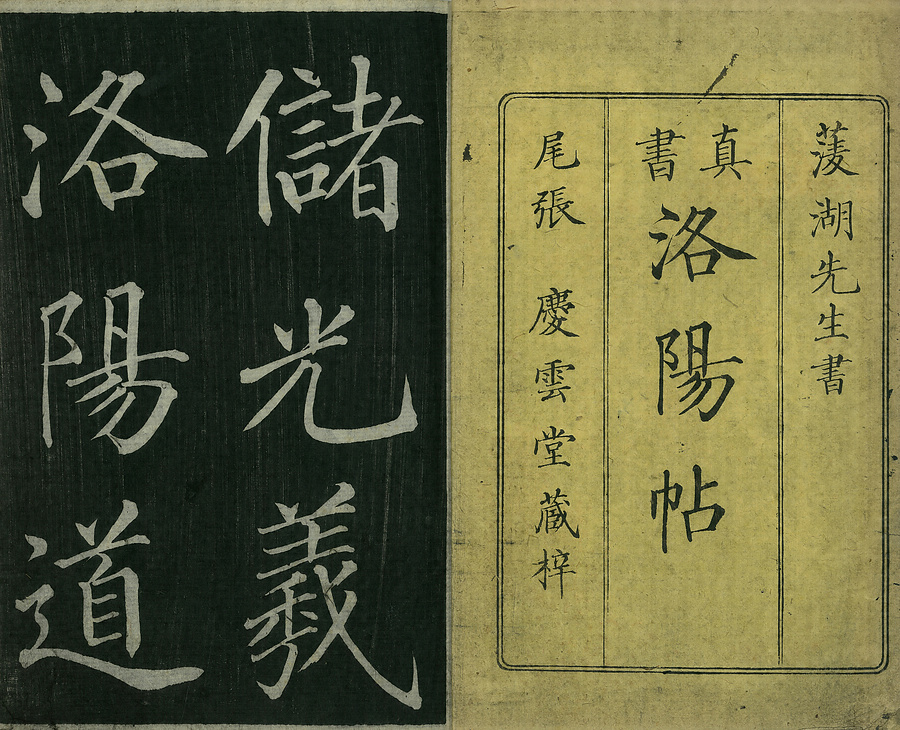 蓤湖先生書
真書
洛陽帖
尾張 慶雲堂蔵梓
儲光羲
洛陽道